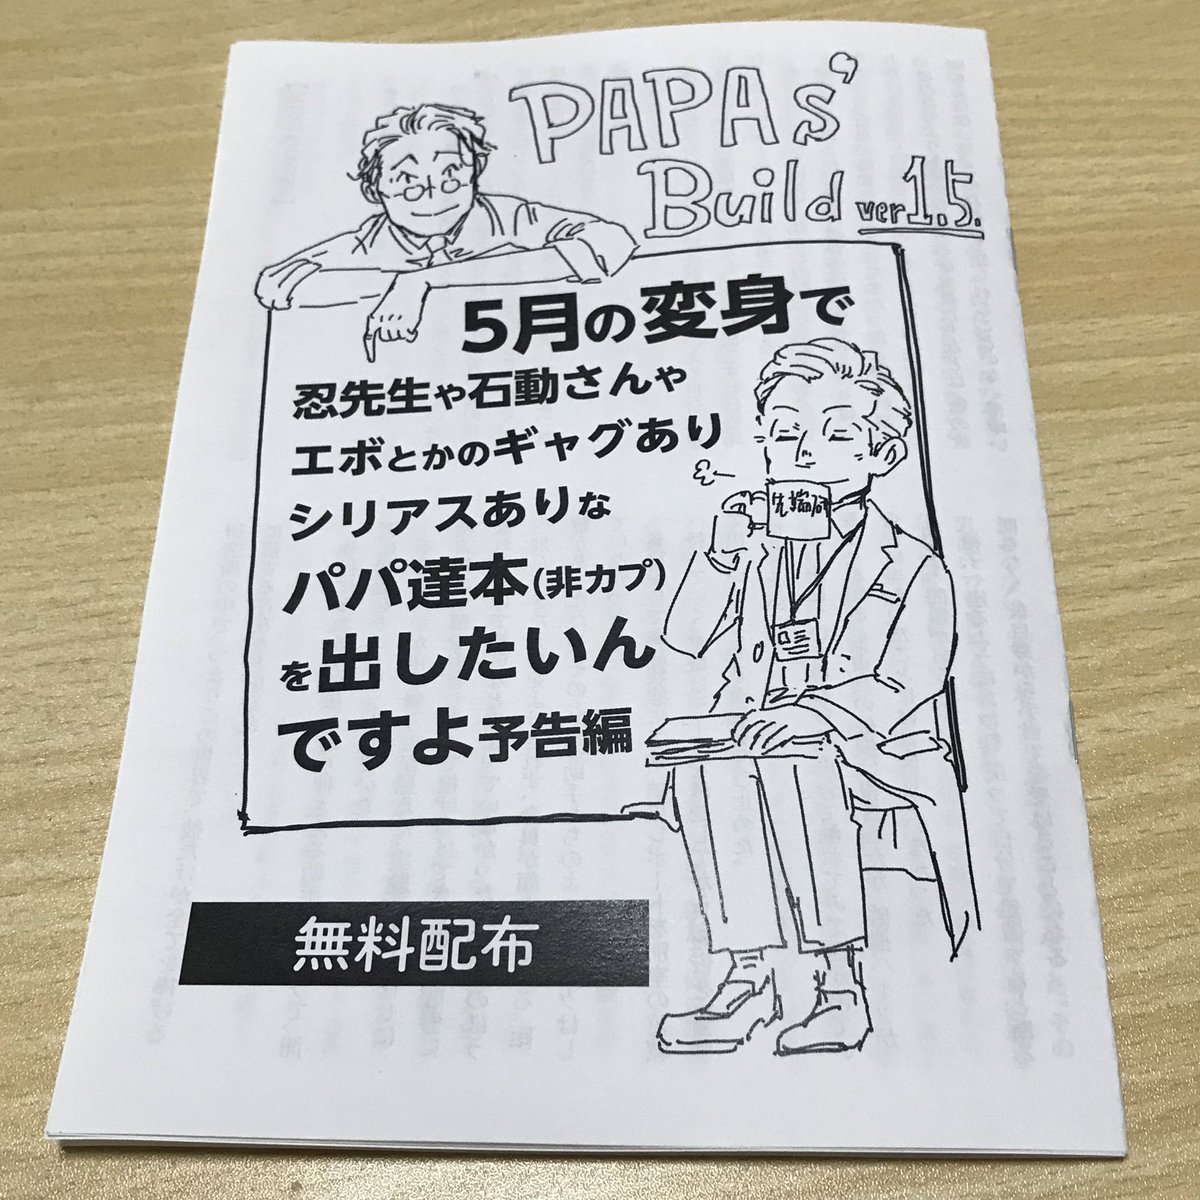 PAPAs'
Build ver1.5.
5月の変身で
忍先生や石動さんや
エボとかのギャグあり
シリアスありな
パパ達本(非カプ)
を出したいん
ですよ予告編
先端研
無料配布